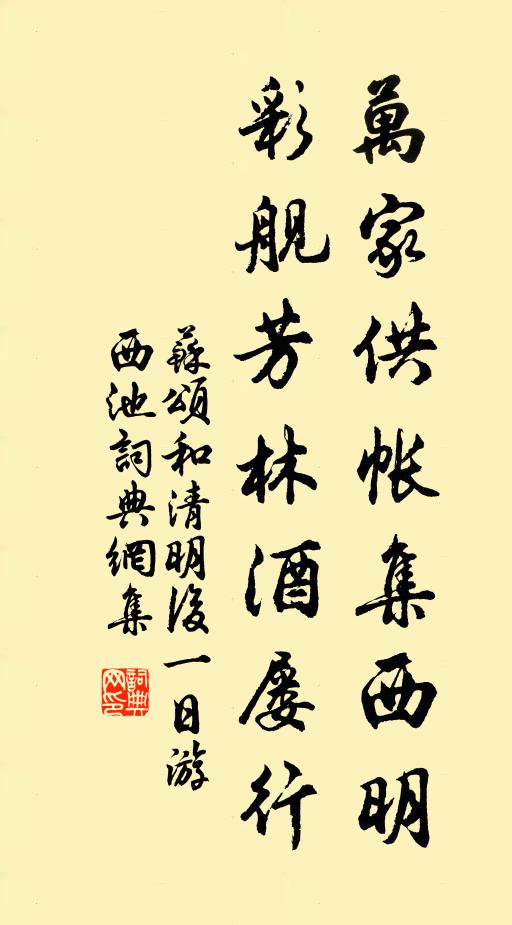 萬家供帐集西明
彩舰芳林酒屡行
蘇頌和清明後一日游
西池詞典網集
詞典
网印